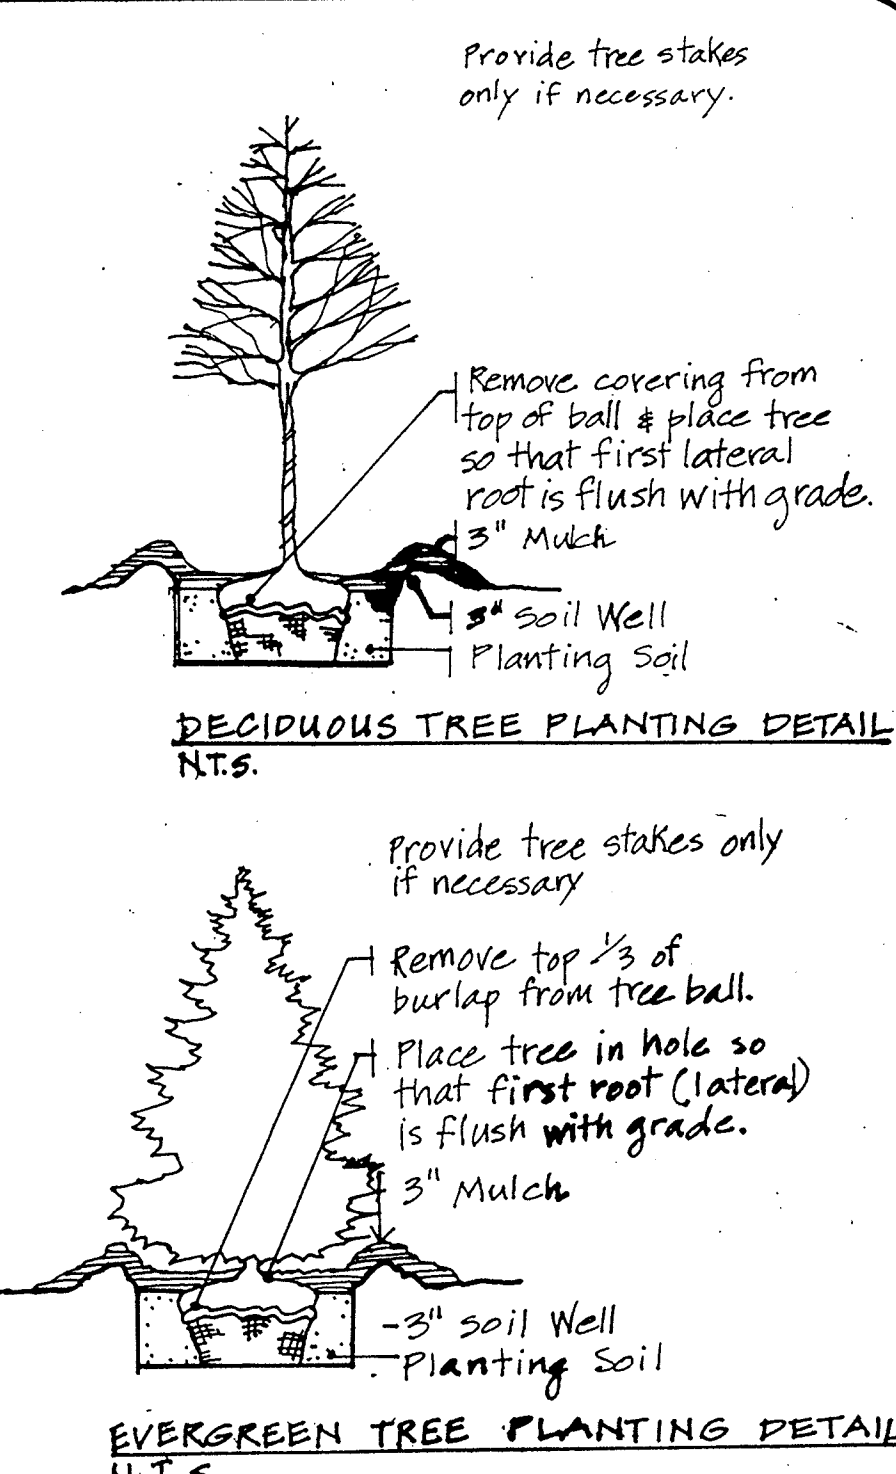 Provide tree stakes
only if necessary.
Remove covering from
top of ball & place tree
so that first lateral
root is flush with grade.
3" Mulch
3" Soil Well
Planting Soil
DECIDUOUS TREE PLANTING DETAIL
N.T.S.
Provide tree stakes only
if necessary
Remove top 1/3 of
burlap from tree ball.
Place tree in hole so
that first root (lateral)
is flush with grade.
3" Mulch
3" Soil Well
Planting Soil
EVERGREEN TREE PLANTING DETAIL
N.T.S.